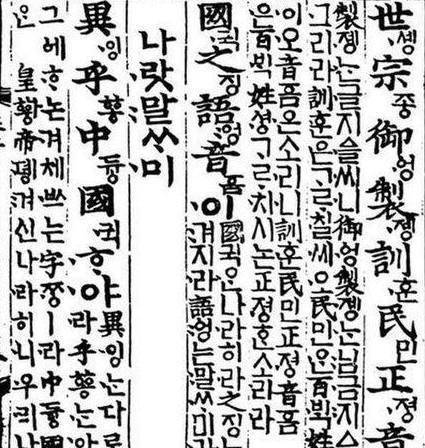 世솅宗종御ᅌᅥᆼ製졩訓훈民민正졍音
製졩ᄂᆞᆫ글지ᅀᅳᆯ씨니御ᅌᅥᆼ製졩ᄂᆞᆫ님금지ᅀᆞ
그리라訓훈은ᄀᆞᄅᆞ칠씨오民민ᄋᆞᆫ百ᄇᆡᆨ姓
이오音ᅙᅳᆷ은소리니訓훈民민正졍音ᅙᅳᆷ
은百ᄇᆡᆨ姓셩ᄀᆞᄅᆞ치시논正졍ᄒᆞᆫ소리라
國귁之징語ᅌᅥᆼ音ᅙᅳᆷ이
國귁ᄋᆞᆫ나라히라之징
겨지라語ᅌᅥᆼ는말ᄊᆞ미라
나랏말ᄊᆞ미
異잉乎ᅘᅩᆼ中듕國귁ᄒᆞ야
異잉ᄂᆞᆫ다ᄅᆞ
라乎ᅘᅩᆼᄂᆞᆫ아
그ᅌᅦᄒᆞ논겨체ᄡᅳ는字ᄍᆞᆼㅣ라中듕國
은皇ᅘᅪᇰ帝뎽겨신나라히니우리나